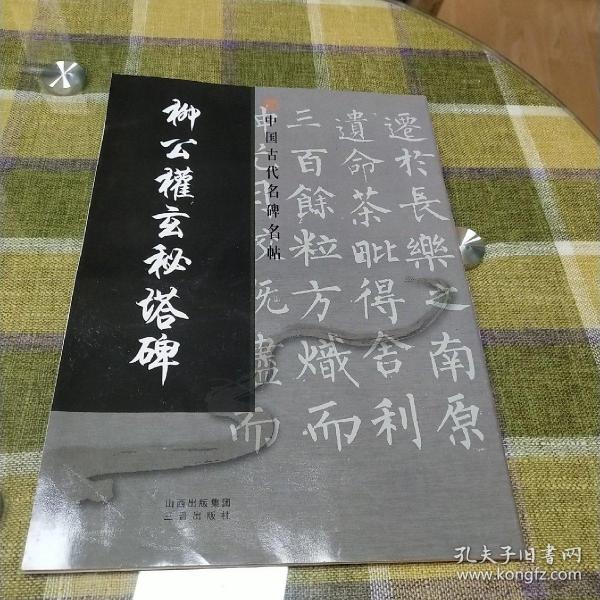 柳公權玄秘塔碑
中国古代名碑名帖
遷於長樂之南原
遺命茶毗得舍利
三百餘粒方熾而
既盡而
山西出版集团
三晋出版社
孔夫子旧书网
www.kongfz.com